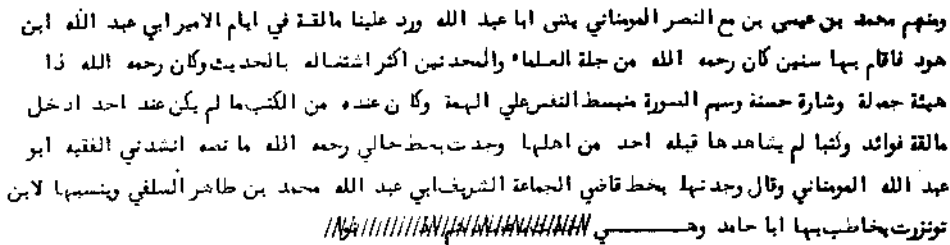 ومنهم محمد بن عيسى بن مع النصر المومناني يكنى ابا عبد الله ورد علينا مالقة في ايام الامير ابي عبد الله ابن
هود فاقام بها سنين كان رحمه الله من جلة العلماء والمحدثين اكثر اشتغاله بالحديث وكان رحمه الله ذا
هيئة جميلة وشارة حسنة وسيم الصورة منبسط النفس علي الهمة وكان عنده من الكتب ما لم يكن عند احد ادخل
مالقة فوائد وكتبا لم يشاهدها قبله احد من اهلها وجدت بخط خالي رحمه الله ما نصه انشدني الفقيه ابو
عبد الله المومناني وقال وجدتها بخط قاضي الجماعة الشريف ابي عبد الله محمد بن طاهر السلفي وينسبها لابن
تونزرت يخاطب بها ابا حامد وهي